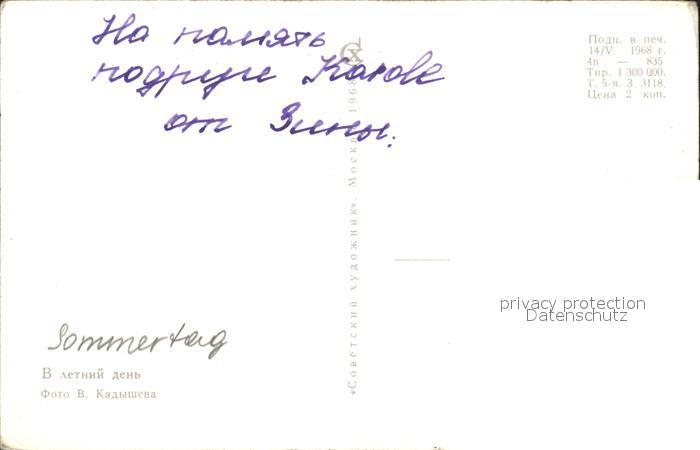 На память
подруге
от Зины.
Подп. в печ.
14/V 1968 г.
4в — 835
Тир. 1 300 000.
Т. 5-я. З. 3118.
Цена 2 коп.
«Советский художник». Москва 1968
privacy protection
Datenschutz
Sommertag
В летний день
Фото В. Кадышева